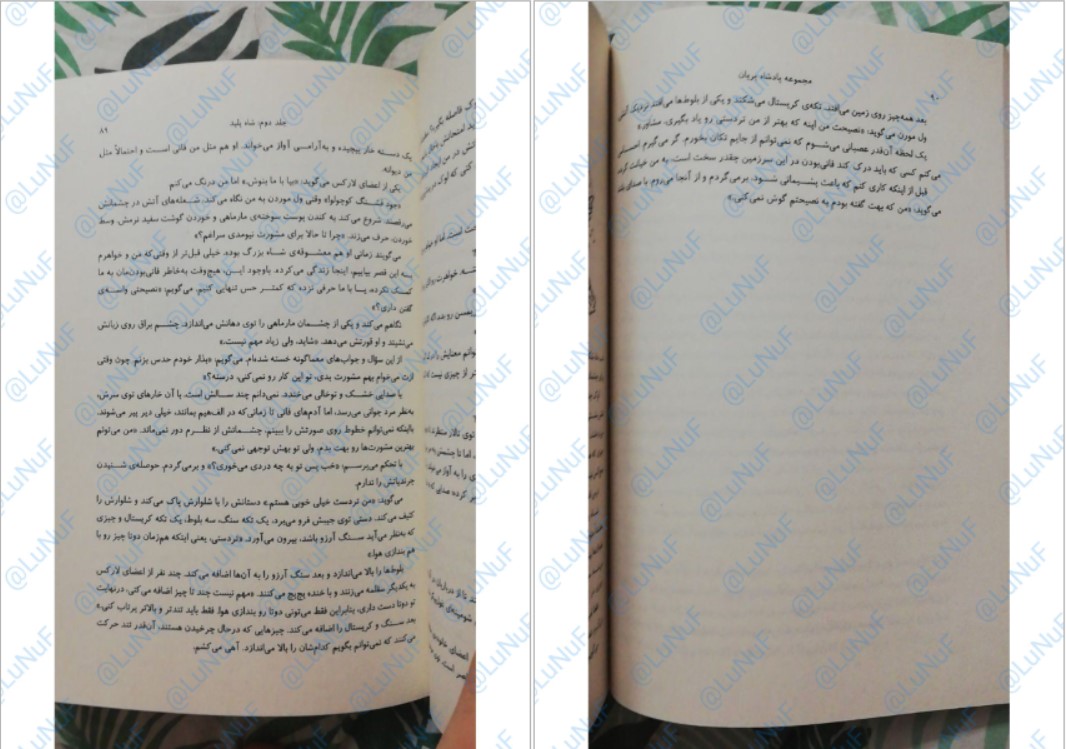 جلد دوم: شاه پلید
۸۹
یک دسته خار پیچیده و به‌آرامی آواز می‌خواند. او هم مثل من فانی است و احتمالاً مثل
من دیوانه.
یکی از اعضای لارکس می‌گوید: «بیا با ما بنوش.» اما من درنگ می‌کنم
وقتی ول موردن به من نگاه می‌کند. شعله‌های آتش در چشمانش
می‌رقصند. شروع می‌کند به کندن پوست سوخته‌ی مارماهی و خوردن گوشت سفید نرمش. وسط
خوردن، حرف می‌زند. «چرا تا حالا برای مشورت نیومدی سراغم؟»
می‌گویند زمانی او هم معشوقه‌ی شاه بزرگ بوده. خیلی قبل‌تر از وقتی‌که من و خواهرم
به این قصر بیاییم، اینجا زندگی می‌کرده. باوجود این، هیچ‌وقت به‌خاطر فانی‌بودن‌مان به ما
کمک نکرده، یا با ما حرفی نزده که کمتر حس تنهایی کنیم. می‌گویم: «نصیحتی واسه‌ی
گفتن داری؟»
نگاهم می‌کند و یکی از چشمان مارماهی را توی دهانش می‌اندازد. چشم براق روی زبانش
می‌نشیند و او قورتش می‌دهد. «شاید، ولی زیاد مهم نیست.»
از این سؤال و جواب‌های معماگونه خسته شده‌ام. می‌گویم: «بذار خودم حدس بزنم. چون وقتی
ازت می‌خوام بهم مشورت بدی، تو این کار رو نمی‌کنی، درسته؟»
با صدایی خشک و توخالی می‌خندد. نمی‌دانم چند سالش است. با آن خارهای توی سرش،
به‌نظر مرد جوانی می‌رسد، اما آدم‌های فانی تا زمانی‌که در الف‌هیم بمانند، خیلی دیر پیر می‌شوند.
بااینکه نمی‌توانم خطوط روی صورتش را ببینم، چشمانش از نظرم دور نمی‌ماند. «من می‌تونم
بهترین مشورت‌ها رو بهت بدم، ولی تو بهش توجهی نمی‌کنی.»
با تحکم می‌پرسم: «خب پس تو به چه دردی می‌خوری؟» و برمی‌گردم. حوصله‌ی شنیدن
چرندیاتش را ندارم.
می‌گوید: «من تردست خیلی خوبی هستم.» دستانش را با شلوارش پاک می‌کند و شلوارش را
کثیف می‌کند. دستی توی جیبش فرو می‌برد. یک تکه سنگ، سه بلوط، یک تکه کریستال و چیزی
که به‌نظر می‌آید سنگ آرزو باشد، بیرون می‌آورد. «تردستی، یعنی اینکه هم‌زمان دوتا چیز رو با
هم بندازی هوا.»
بلوط‌ها را بالا می‌اندازد و بعد سنگ آرزو را به آن‌ها اضافه می‌کند. چند نفر از اعضای لارکس
به یکدیگر سقلمه می‌زنند و با خنده پچ‌پچ می‌کنند. «مهم نیست چند تا چیز اضافه می‌کنی، درنهایت
تو دوتا دست داری، بنابراین فقط می‌تونی دوتا رو بندازی هوا. فقط باید تندتر و بالاتر پرتاب کنی.»
بعد سنگ و کریستال را اضافه می‌کند. چیزهایی که درحال چرخیدن هستند، آن‌قدر تند حرکت
می‌کنند که نمی‌توانم بگویم کدام‌شان را بالا می‌اندازد. آهی می‌کشم.
مجموعه پادشاه پریان
۹۰
بعد همه‌چیز روی زمین می‌افتد. تکه‌ی کریستال می‌شکند و یکی از بلوط‌ها می‌افتد نزدیک آتش.
ول مورن می‌گوید: «نصیحت من اینه که بهتر از من تردستی رو یاد بگیری، مشاور.»
یک لحظه آن‌قدر عصبانی می‌شوم که نمی‌توانم از جایم تکان بخورم. گر می‌گیرم. احساس
می‌کنم کسی که باید درک کند فانی‌بودن در این سرزمین چقدر سخت است، به من خیانت کرده.
قبل از اینکه کاری کنم که باعث پشیمانی شود، برمی‌گردم و از آنجا می‌روم. با صدای بلند
می‌گوید: «من که بهت گفته بودم به نصیحتم گوش نمی‌کنی.»
@LuNuF